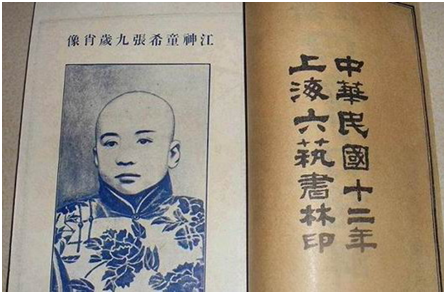 中華民國十二年
上海六蓺書林印
江神童希張九歲肖像